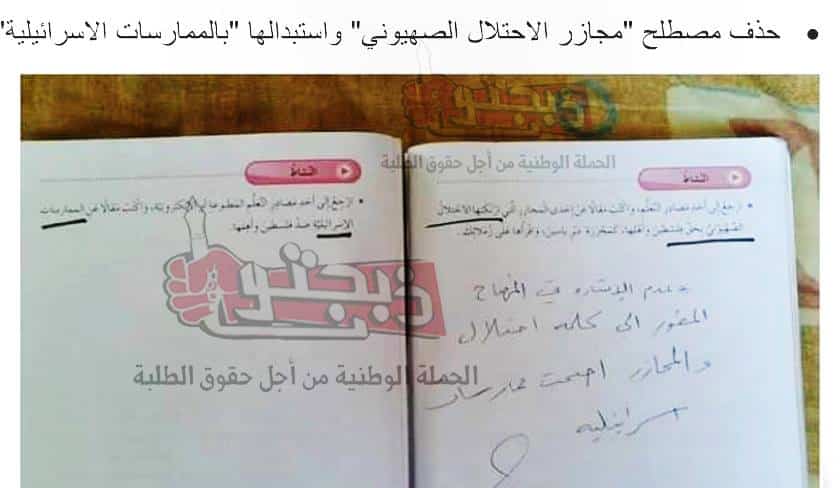 • حذف مصطلح "مجازر الاحتلال الصهيوني" واستبدالها "بالممارسات الاسرائيلية"
ذبحتونا
الحملة الوطنية من أجل حقوق الطلبة
النشاط
• ارجع إلى أحد مصادر التعلم، واكتب مقالًا عن إحدى المجازر التي ارتكبها الاحتلال
الصهيوني بحق فلسطين وأهلها، كمجزرة دير ياسين، واقرأها على زملائك.
النشاط
• ارجع إلى أحد مصادر التعلم المطبوعة أو الإلكترونية، واكتب مقالًا عن الممارسات
الإسرائيلية ضد فلسطين وأهلها.
عدم الإشارة في المنهاج
المطور الى كلمة احتلال
والمجازر اصبحت ممارسات
اسرائيلية
ذبحتونا
الحملة الوطنية من أجل حقوق الطلبة